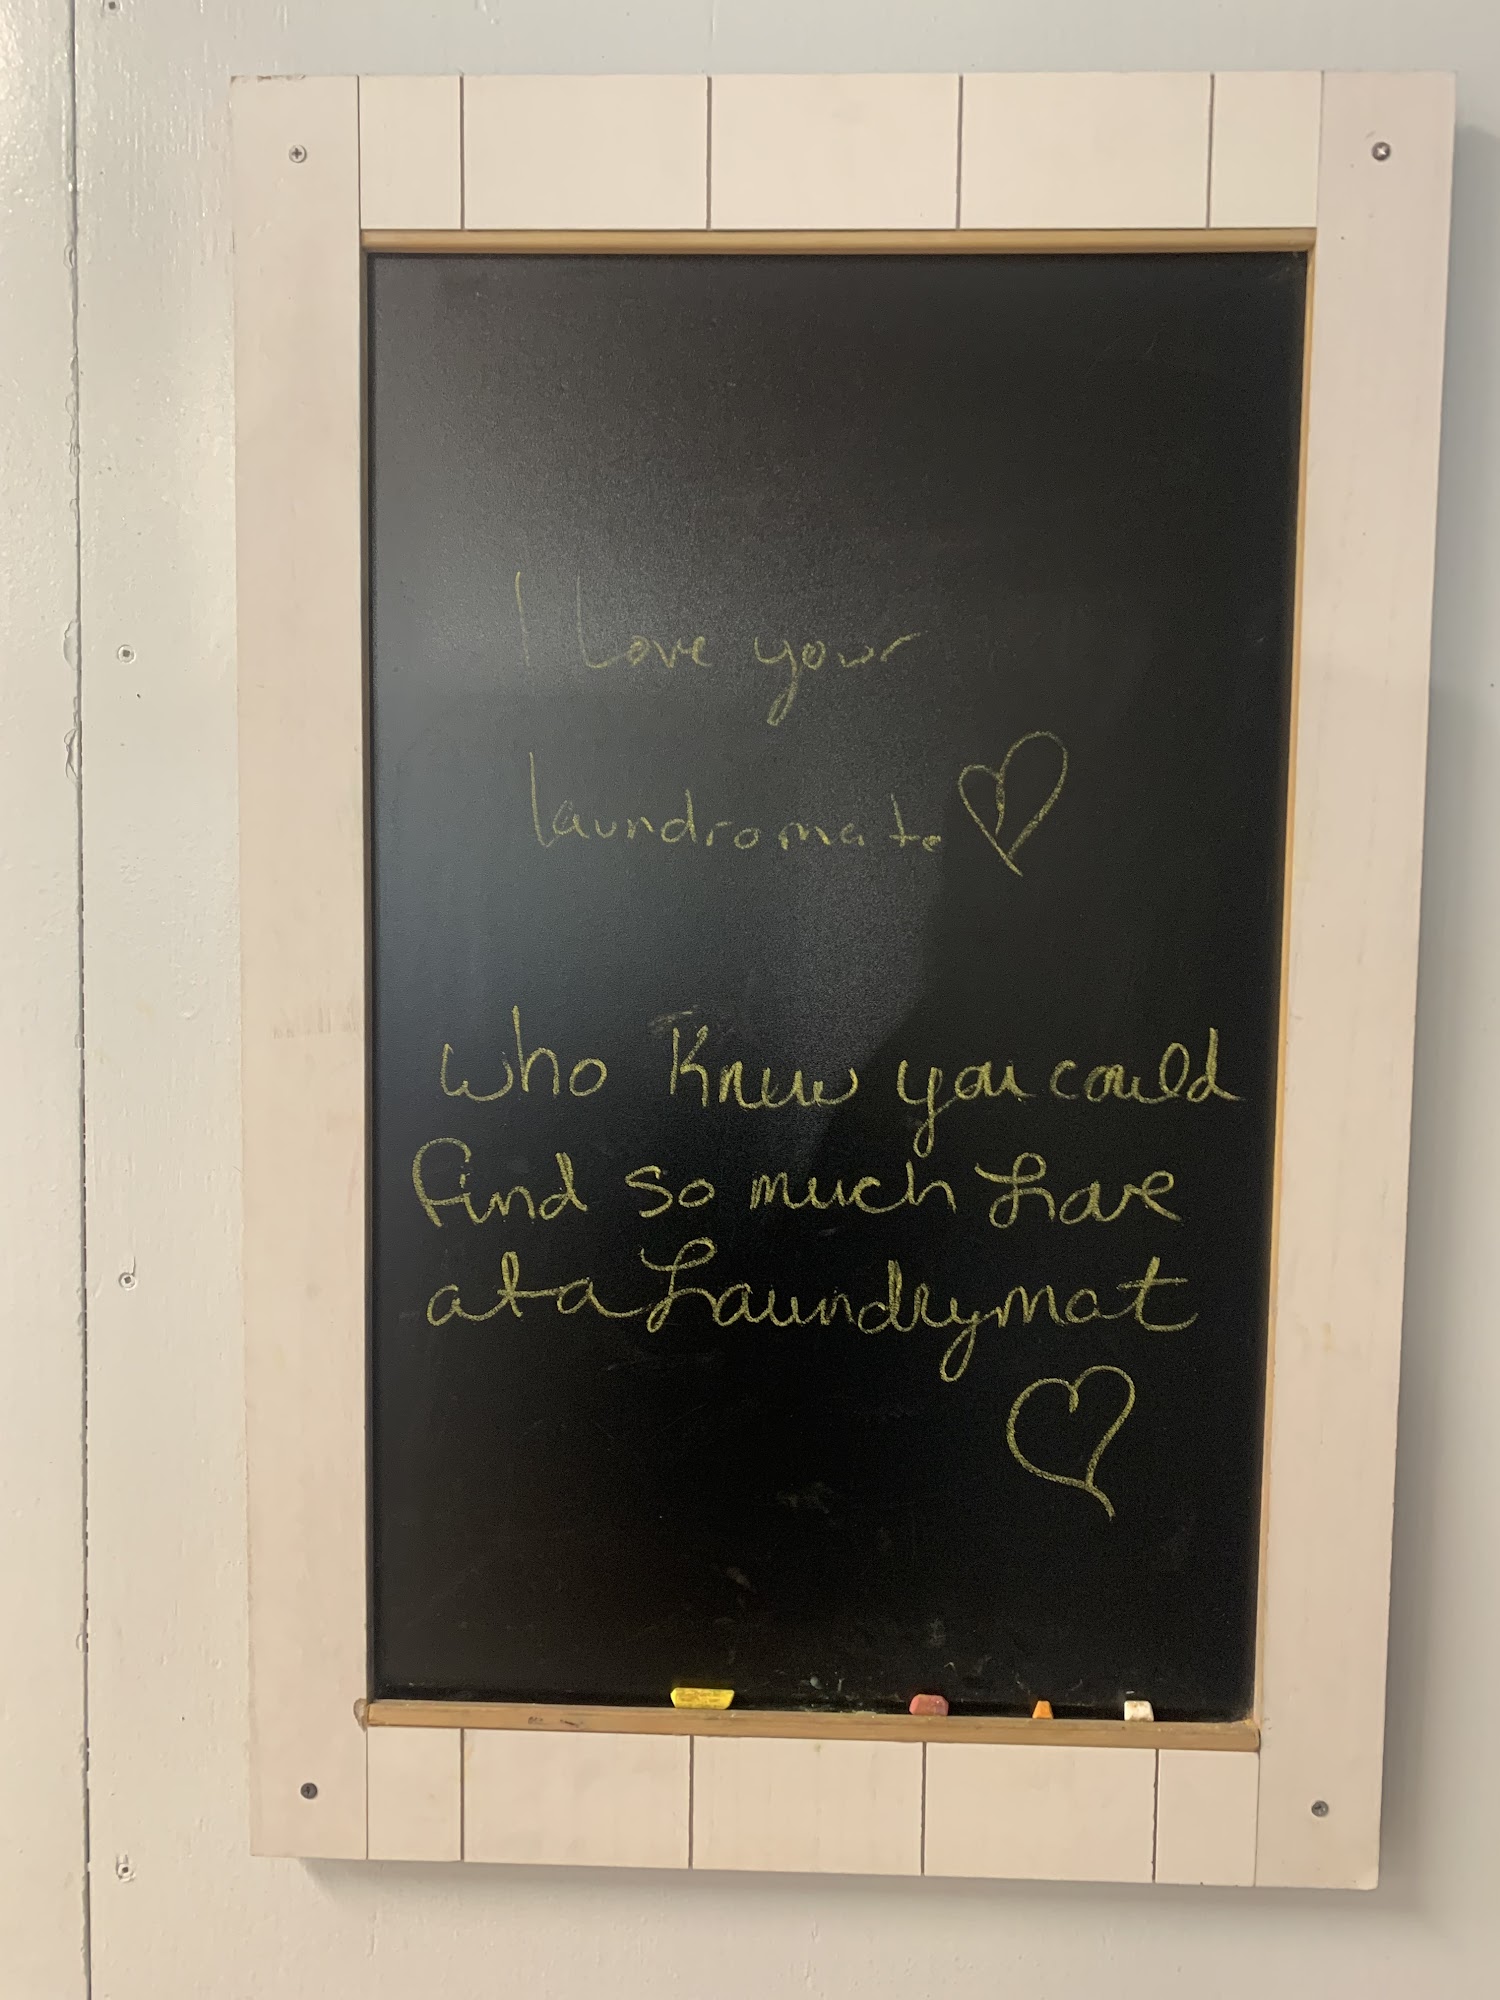 I Love your
laundromate
Who Knew you could
find so much Love
at a Laundrymat